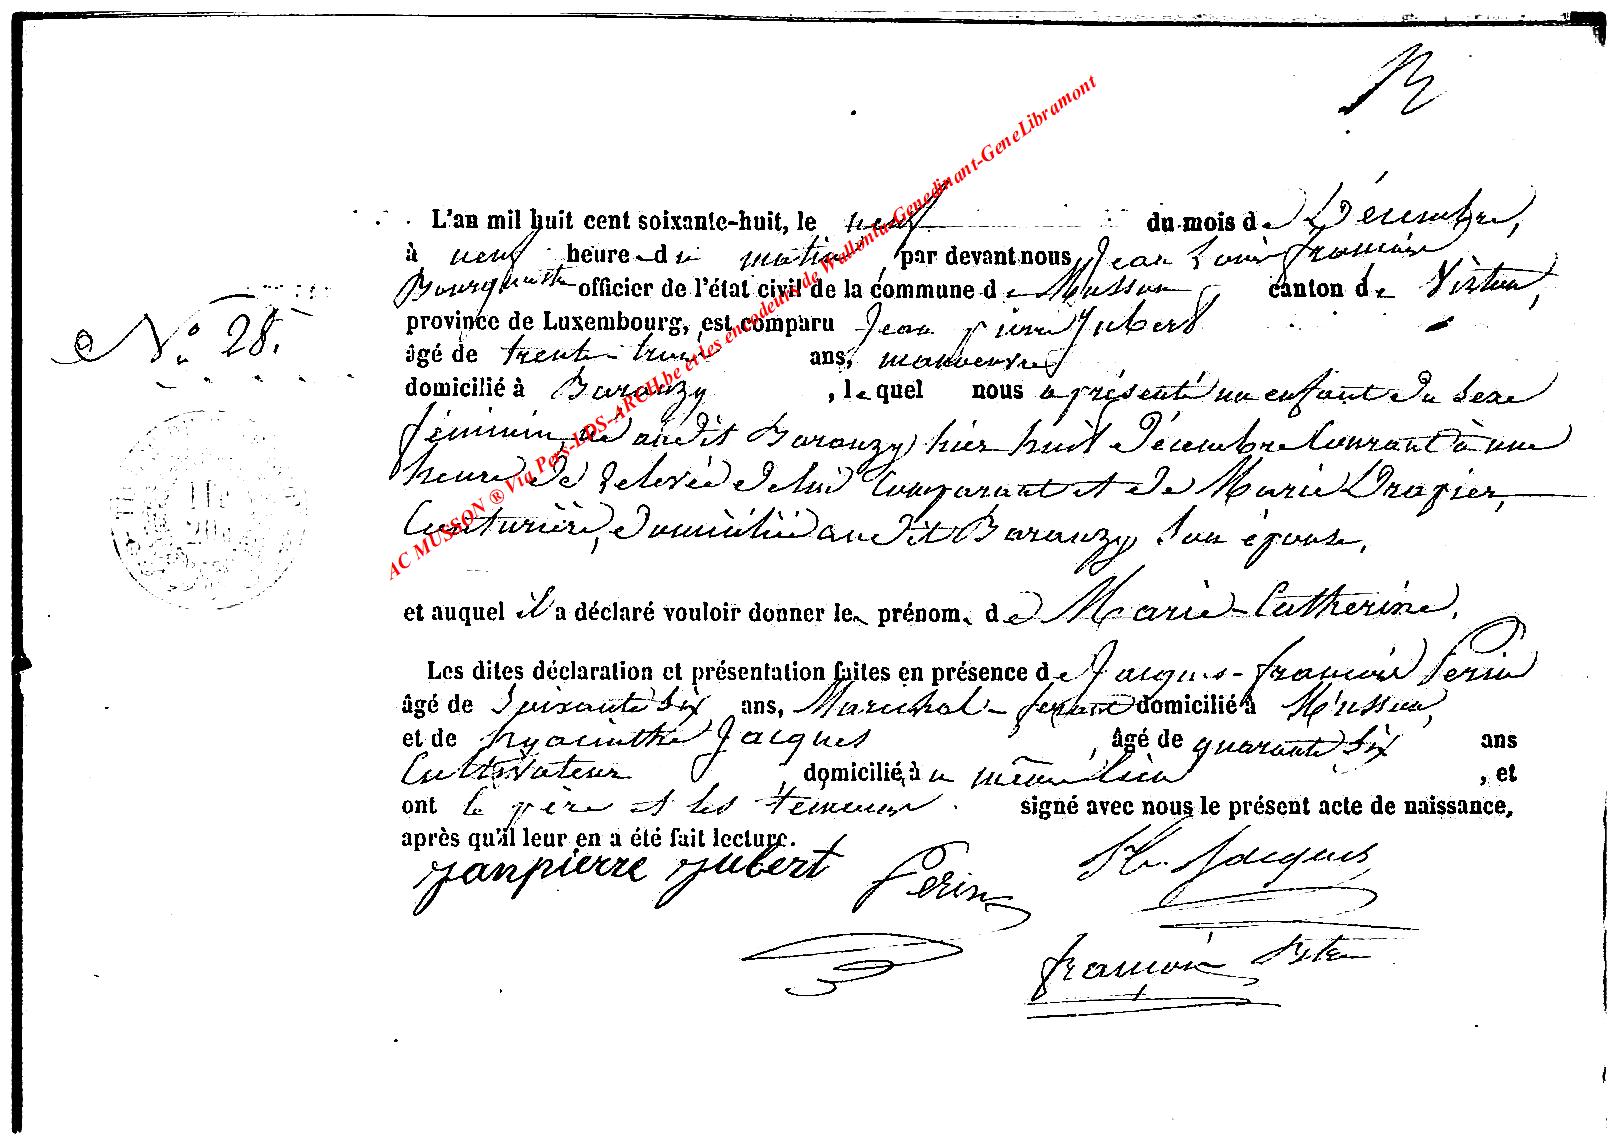 L'an mil huit cent soixante-huit, le neuf du mois de Décembre,
à neuf heure du matin, par devant nous Jean Louis françois
Bourguotte officier de l'état civil de la commune de Musson canton de Virton,
province de Luxembourg, est comparu Jean pierre Jubert
N° 28.
âgé de trente-trois ans, manoeuvre
domicilié à Baranzy, lequel nous a présenté un enfant du sexe
féminin, né audit Baranzy, hier huit Décembre Courant à une
heure de relevée de lui Comparant et de Marie Drapier,
Couturière, domiciliée audit Baranzy, son épouse,
et auquel il a déclaré vouloir donner le prénom de Marie-Catherine.
Les dites déclaration et présentation faites en présence de Jacques-françois Perin
âgé de soixante six ans, Maréchal-ferant domicilié à Musson,
et de hyacinthe Jacques, âgé de quarante six ans
Cultivateur, domicilié au même lieu, et
ont le père et les témoins signé avec nous le présent acte de naissance,
après qu'il leur en a été fait lecture.
Janpierre Jubert Perin Jacques
françois
AC MUSSON ® Via Pers-LDS-ARCH.be et les encodeurs de Wallonia-Genedinant-GeneLibramont